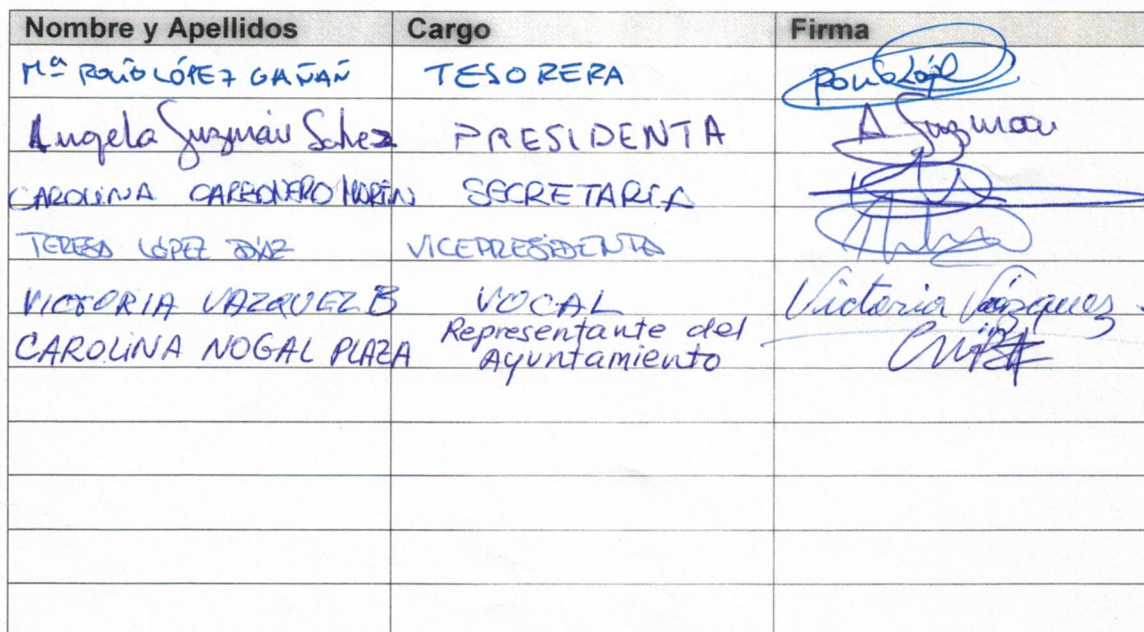 Nombre y Apellidos Cargo Firma
Mª ROCÍO LÓPEZ GAÑAN TESORERA Rocío López
Angela Guzmán Schez PRESIDENTA A Guzman
CAROLINA CARBONERO MORÍN SECRETARIA
TERESA LÓPEZ DÍAZ VICEPRESIDENTA
VICTORIA VAZQUEZ B VOCAL Victoria Vázquez
CAROLINA NOGAL PLAZA Representante del
Ayuntamiento